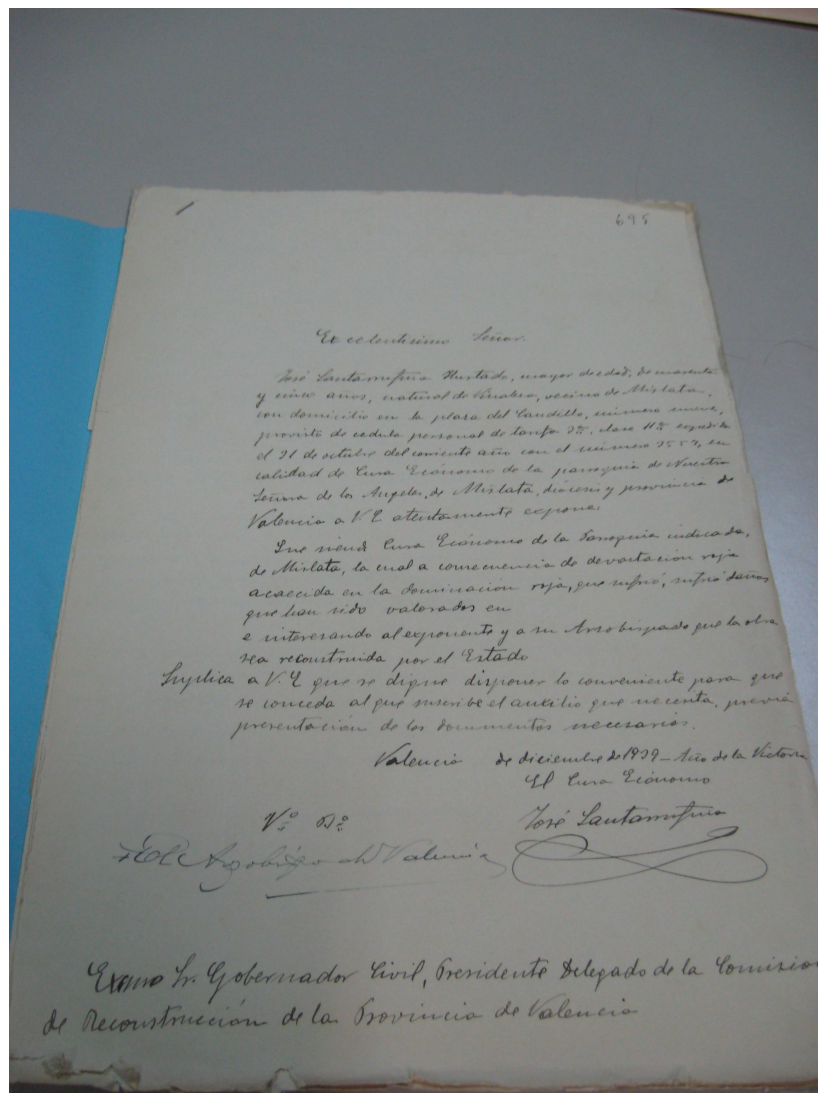 695
Excelentísimo Señor.
José Santarrufina Hurtado, mayor de edad, de cuarenta
y cinco años, natural de, vecino de Mislata,
con domicilio en la plaza del Caudillo, número nueve,
provisto de cedula personal de tarifa clase 11ª expedida
el 21 de octubre del corriente año con el número en
calidad de Cura Ecónomo de la parroquia de Nuestra
Señora de los Angeles, de Mislata, diócesis y provincia de
Valencia a V.E atentamente expone:
Que siendo Cura Ecónomo de la Parroquia indicada,
de Mislata, la cual a consecuencia de devastación roja
acaecida en la dominación roja, que sufrió, sufrió daños
que han sido valorados en
e interesando al exponente y a su Arzobispado que la obra
sea reconstruida por el Estado
Suplica a V.E que se digne disponer lo conveniente para que
se conceda al que suscribe el auxilio que necesita, previa
presentación de los documentos necesarios.
Valencia de diciembre de 1939 – Año de la Victoria
El Cura Ecónomo
Vº Bº José Santarrufina
+ El Arzobispo de Valencia
Exmo Sr. Gobernador Civil, Presidente Delegado de la Comisión
de Reconstrucción de la Provincia de Valencia